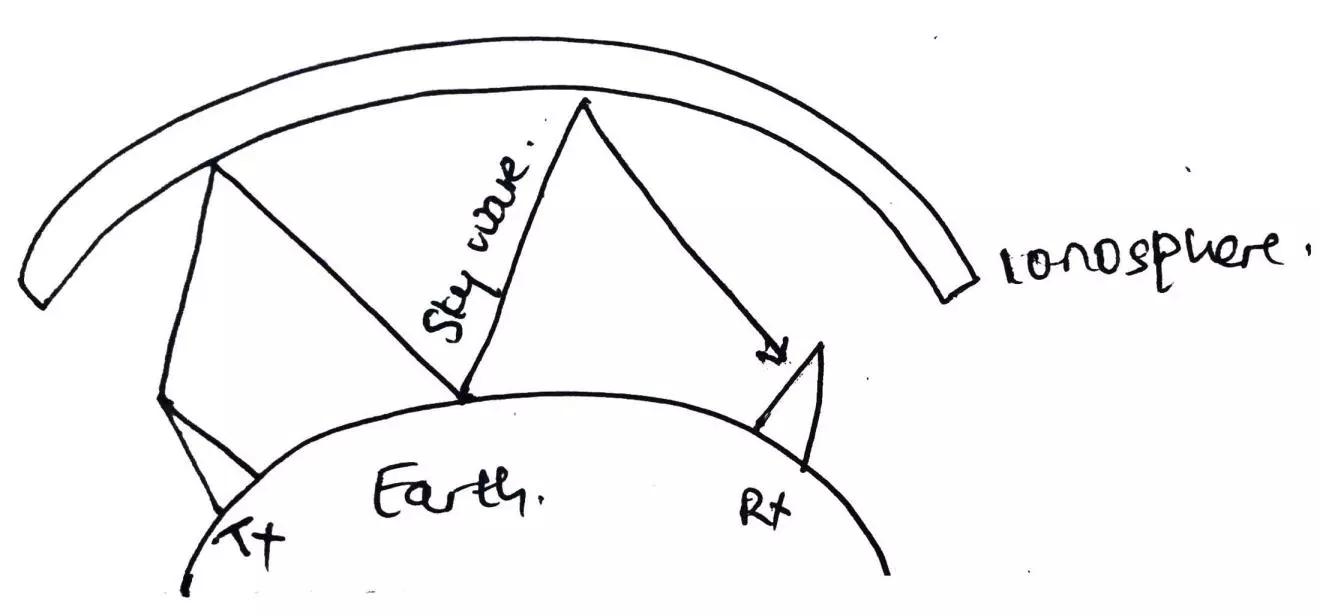 Sky wave.
Ionosphere.
Earth.
Tx
Rx